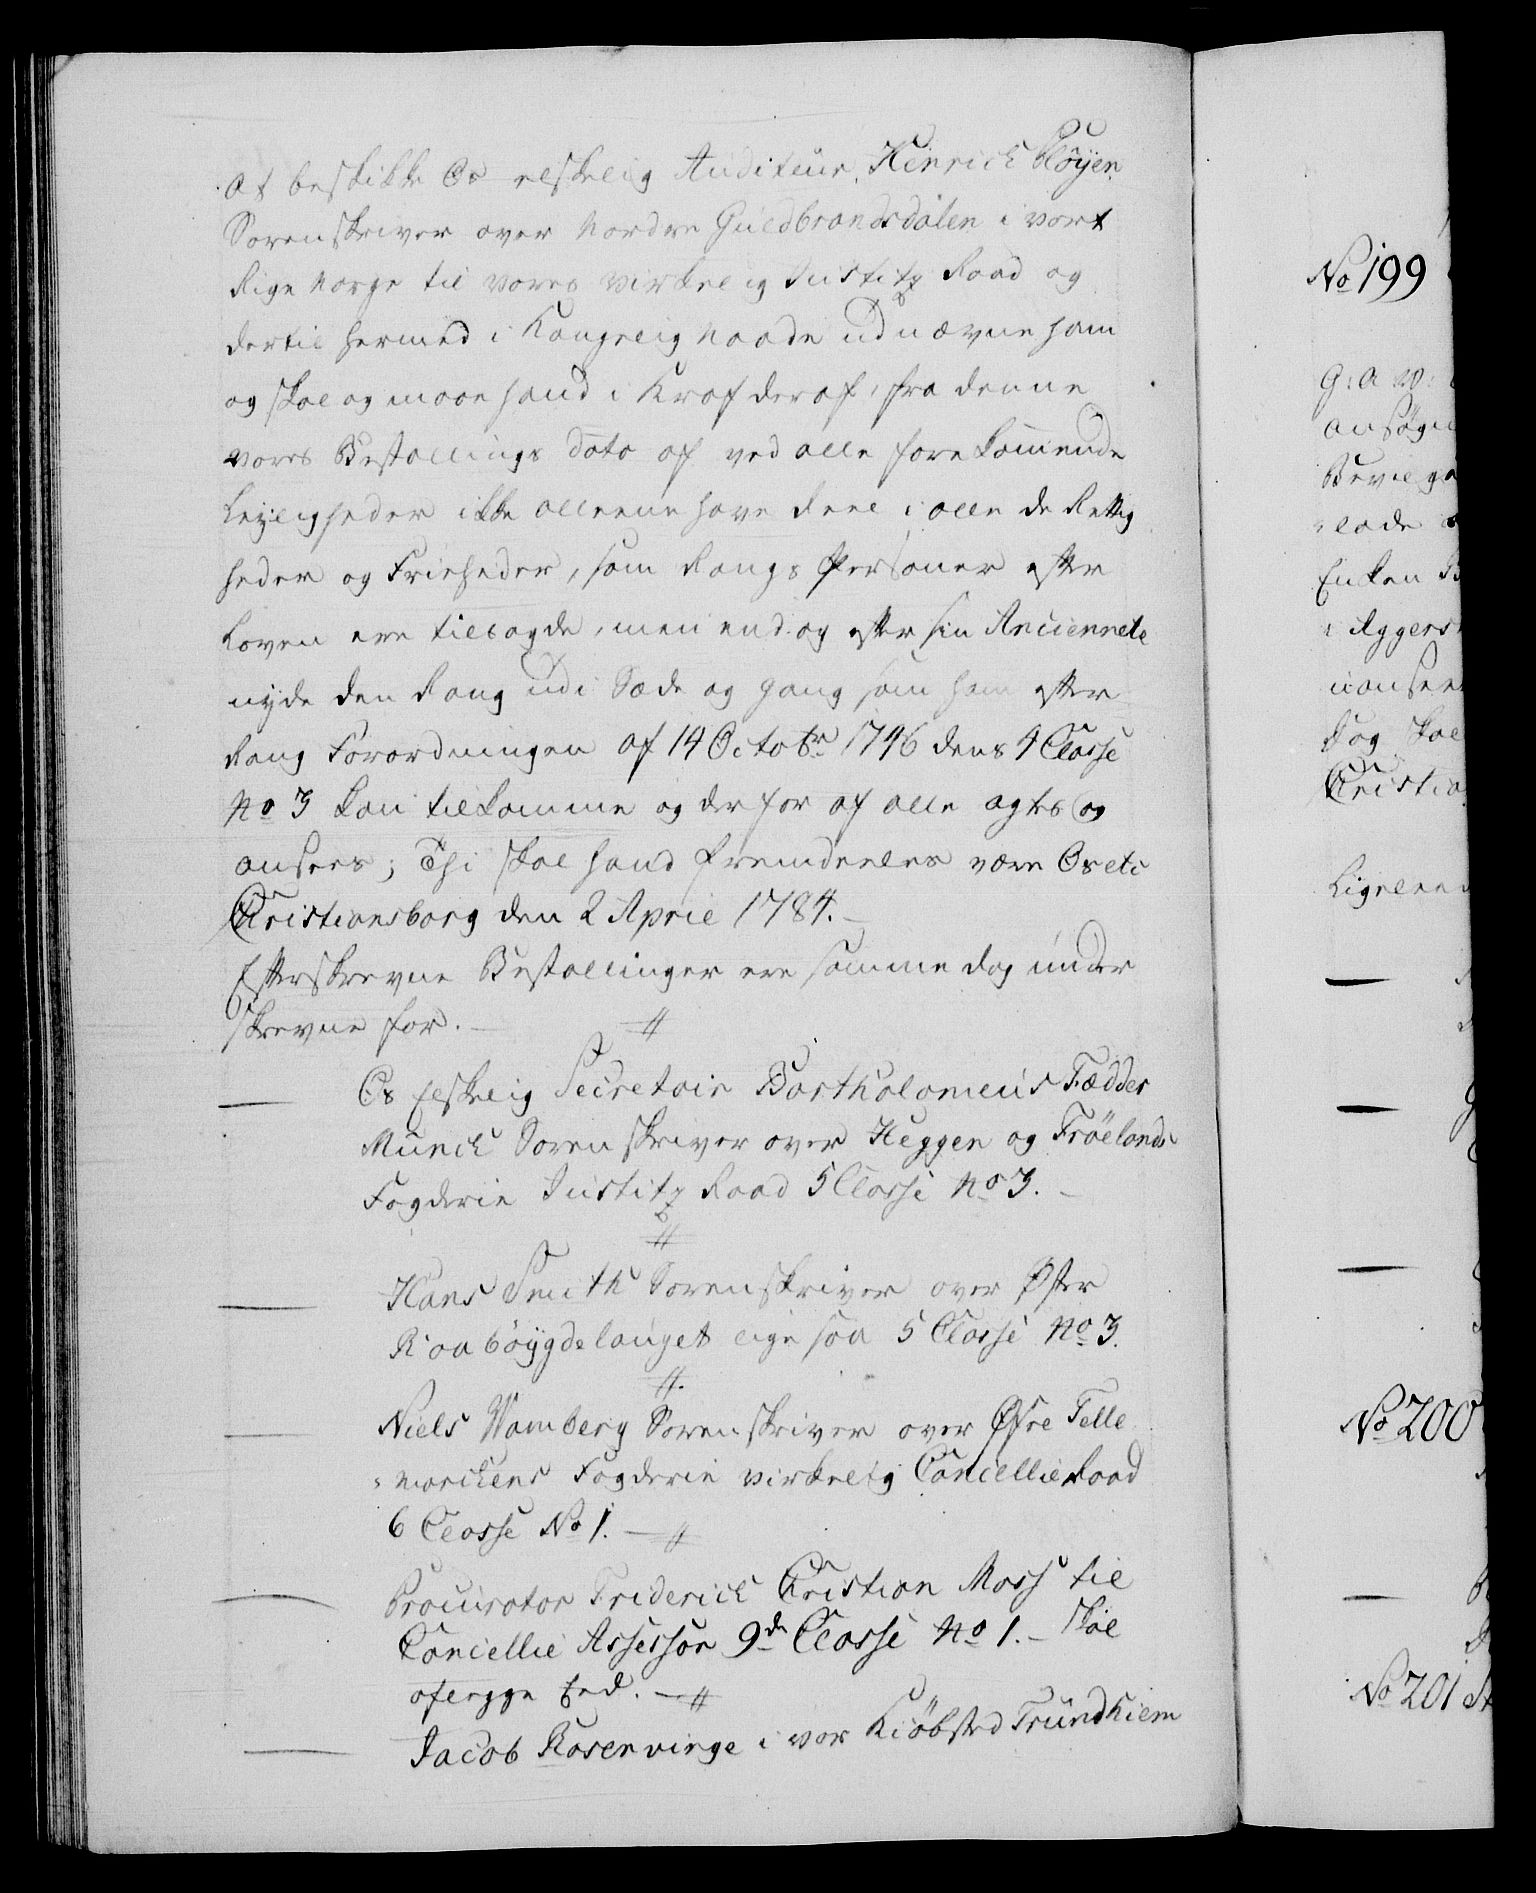 at beskikke Os elskelig Auditeur, Hinrich Pløyen
Sorenskriver over Nordre Guldbrandsdalen i vort
Rige Norge til vores virkelig Justitz Raad og
dertil hermed i Kongelig Naade udnævne ham
og skal og maae hand i Kraft deraf, fra denne
vores Bestallings dato af ved alle forekommende
Leyligheder ikke alleene have deel i alle de Rettig
heder og Friheder, som Rangs Personer efter
Loven ere tilsagde, men endog efter sin Anciennete
nyde den Rang udi Sæde og gang som ham efter
Rang Forordningen af 14 Octobr 1746 dens 4 Classe
No 3 kan tilkomme og derfor af alle agtes og
ansees; Thi skal hand fremdeeles være Os etc
Christiansborg den 2 April 1784.
Efterskrevne Bestallinger ere samme dag under
skrevne for.
Os Elskelig Secretair Bartholomeus Fædder
Munch Sorenskriver over Heggen og Frøelands
Fogderie Justitz Raad 5 Classe No 3.
Hans Smith Sorenskriver over Øster
Raabøygdelauget ligesaa 5 Classe No 3.
Niels Wamberg Sorenskriver over Øfre Telle
marckens Fogderie virkelig Cancellie Raad
6 Classe No 1.
Procurator Friderich Christian Moss til
Cancellie Assessor 9de Classe No 1. skal
aflegge Eed.
Jacob Rosenvinge i vor Kiøbsted Trundhiem
No 199
G: A: W:
ansøgn
Bevilga
lade
Enken
Aggers
uanseet
Dog skal
Christia
Ligeleene
No 200
No 201